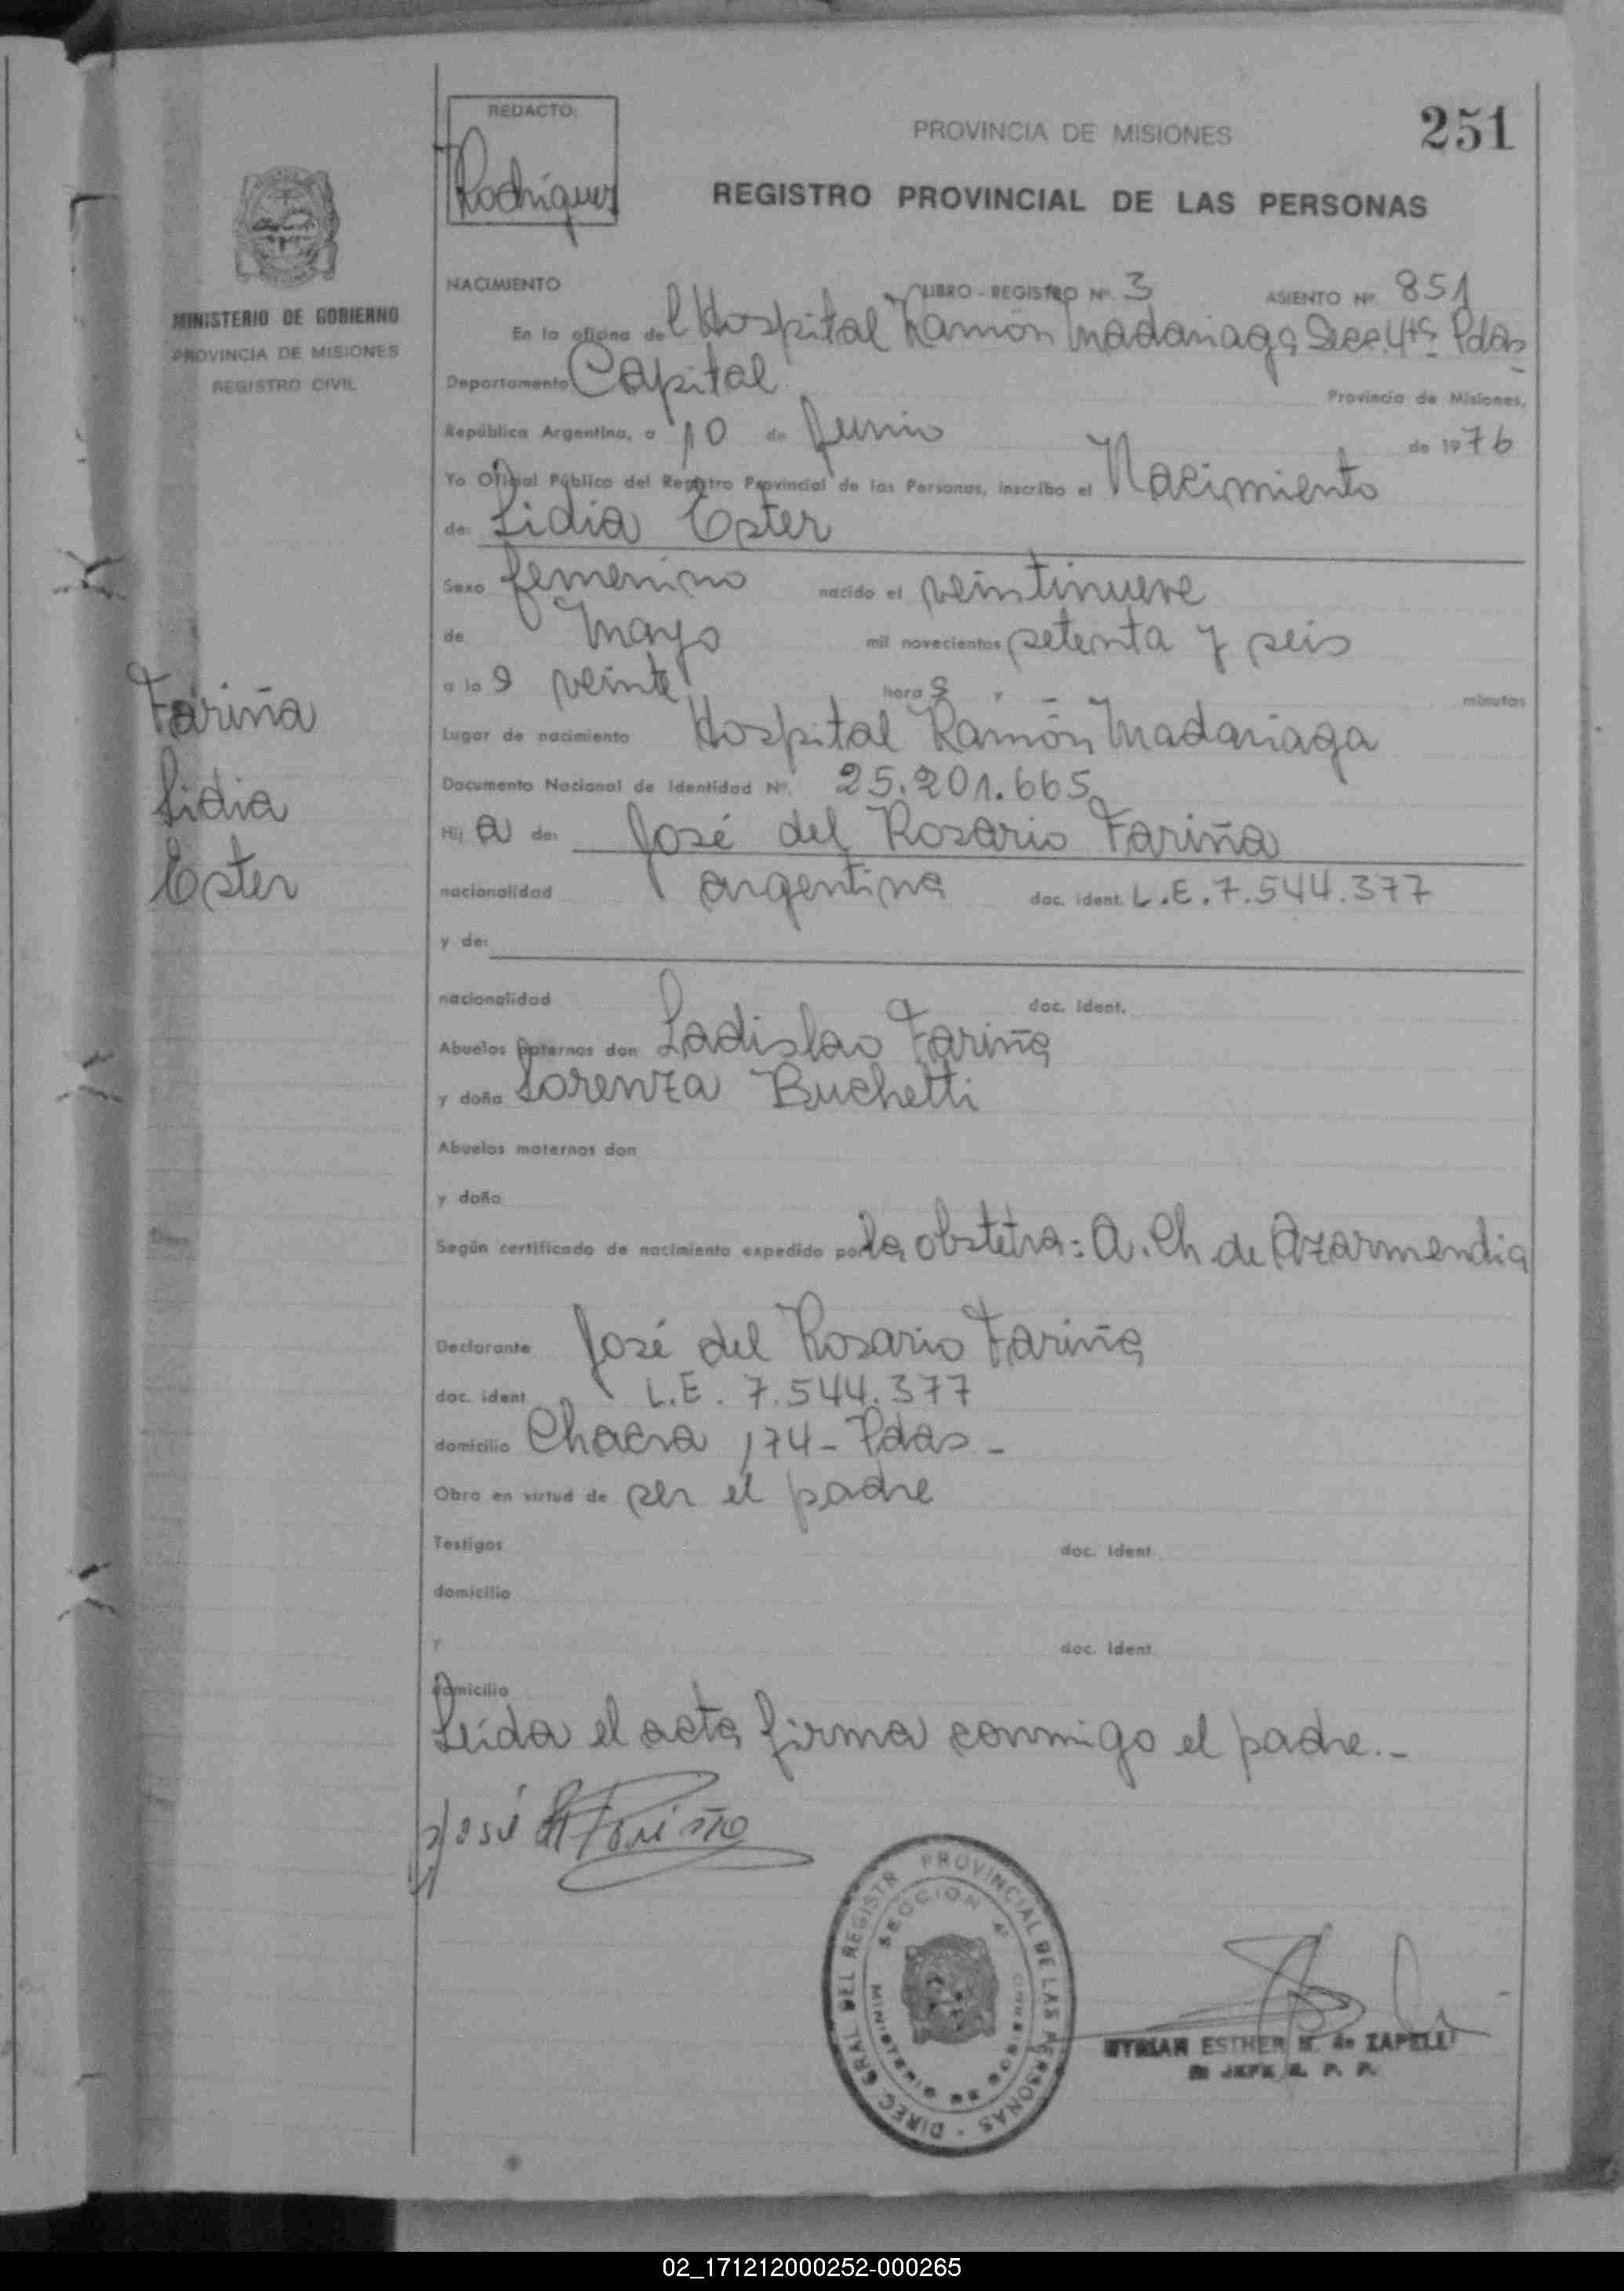 REDACTO:
Rodríguez
PROVINCIA DE MISIONES
251
REGISTRO PROVINCIAL DE LAS PERSONAS
MINISTERIO DE GOBIERNO
PROVINCIA DE MISIONES
REGISTRO CIVIL
NACIMIENTO LIBRO - REGISTRO Nº. 3 ASIENTO Nº. 851
En la oficina del Hospital Ramón Madariaga Secc. 4ta Pdas
Departamento Capital Provincia de Misiones,
República Argentina, a 10 de Junio de 1976
Yo Oficial Público del Registro Provincial de las Personas, inscribo el Nacimiento
de: Lidia Ester
Sexo femenino nacido el veintinueve
de Mayo mil novecientos setenta y seis
a las veinte horas y — minutos
Lugar de nacimiento Hospital Ramón Madariaga
Documento Nacional de Identidad Nº. 25.201.665
Hij a de: José del Rosario Fariña
nacionalidad argentina doc. ident. L.E. 7.544.377
y de:
nacionalidad doc. ident.
Abuelos paternos don Ladislao Fariña
y doña Lorenza Buchetti
Abuelos maternos don
y doña
Según certificado de nacimiento expedido por la obstetra: A. Ch de Azarmendia
Declarante José del Rosario Fariña
doc. ident L.E. 7.544.377
domicilio Chacra 174 - Pdas -
Obra en virtud de ser el padre
Testigos doc. ident
domicilio
y doc. ident
domicilio
Leída el acta firma conmigo el padre.-
Fariña
Lidia
Ester
José Fariña
DIREC. GRAL DEL REGISTR PROVINCIAL DE LAS PERSONAS
SECCION 4ª
MINISTERIO DE GOBIERNO
MYRIAN ESTHER M. de ZAPELLI
JEFE R. P. P.
02_171212000252-000265